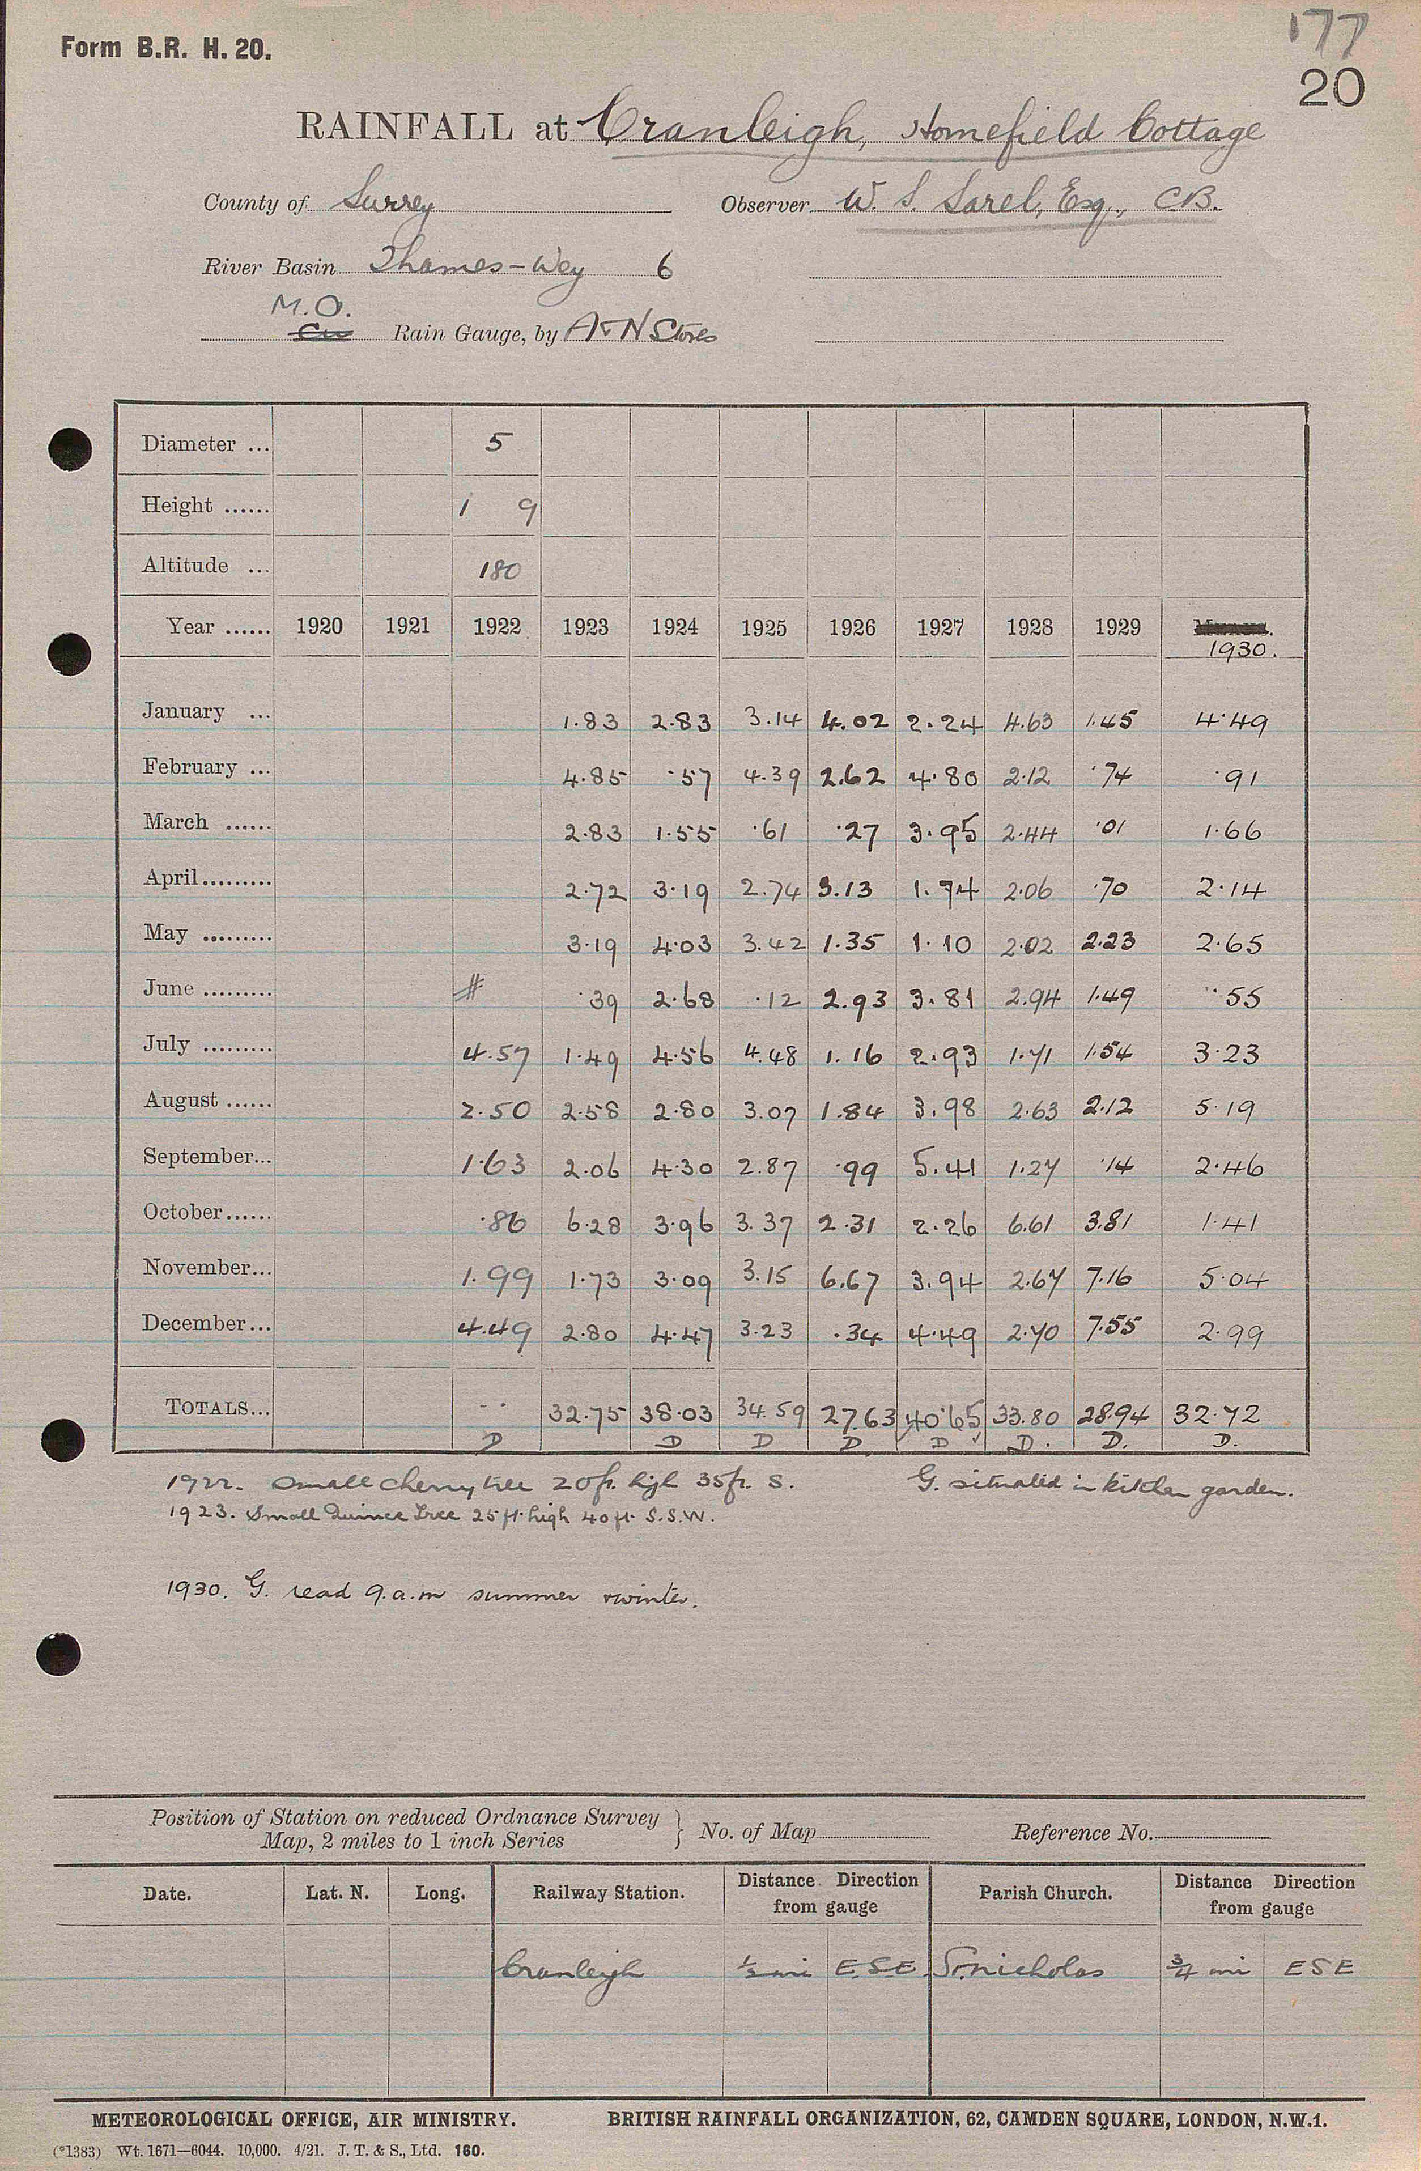 177
Form B.R. H. 20.
20
RAINFALL at Cranleigh, Homefield Cottage
County of Surrey Observer W. S. Sarel, Esq., C.B.
River Basin Thames-Wey 6
M.O.
Rain Gauge, by A & N Stores
Diameter ... 5
Height ...... 1 9
Altitude ... 180
Year ...... 1920 1921 1922 1923 1924 1925 1926 1927 1928 1929 1930.
January ... 1.83 2.83 3.14 4.02 2.24 4.63 1.45 4.49
February ... 4.85 .57 4.39 2.62 4.80 2.12 .74 .91
March ...... 2.83 1.55 .61 .27 3.95 2.44 .01 1.66
April......... 2.72 3.19 2.74 3.13 1.74 2.06 .70 2.14
May ......... 3.19 4.03 3.42 1.35 1.10 2.02 2.23 2.65
June ......... # .39 2.68 .12 2.93 3.81 2.94 1.49 .55
July ......... 4.57 1.49 4.56 4.48 1.16 2.93 1.71 1.54 3.23
August ...... 2.50 2.58 2.80 3.07 1.84 3.98 2.63 2.12 5.19
September... 1.63 2.06 4.30 2.87 .99 5.41 1.27 .14 2.46
October...... .86 6.28 3.96 3.37 2.31 2.26 6.61 3.81 1.41
November... 1.99 1.73 3.09 3.15 6.67 3.94 2.67 7.16 5.04
December... 4.49 2.80 4.47 3.23 .34 4.49 2.70 7.55 2.99
TOTALS... - - 32.75 38.03 34.59 27.63 40.65 33.80 28.94 32.72
D D D D D ✓ D. D. D.
1922. Small cherry tree 20ft. high 35ft. S. G. situated in kitchen garden.
1923. Small Quince Tree 25 ft. high 40 ft. S.S.W.
1930. G. read 9.a.m summer & winter.
Position of Station on reduced Ordnance Survey
Map, 2 miles to 1 inch Series } No. of Map Reference No.
Date. Lat. N. Long. Railway Station. Distance Direction from gauge Parish Church. Distance Direction from gauge
Cranleigh ½ mi E.S.E. St. Nicholas ¾ mi ESE
METEOROLOGICAL OFFICE, AIR MINISTRY. BRITISH RAINFALL ORGANIZATION, 62, CAMDEN SQUARE, LONDON, N.W.1.
(*1383) Wt. 1671—6044. 10,000. 4/21. J. T. & S., Ltd. 160.